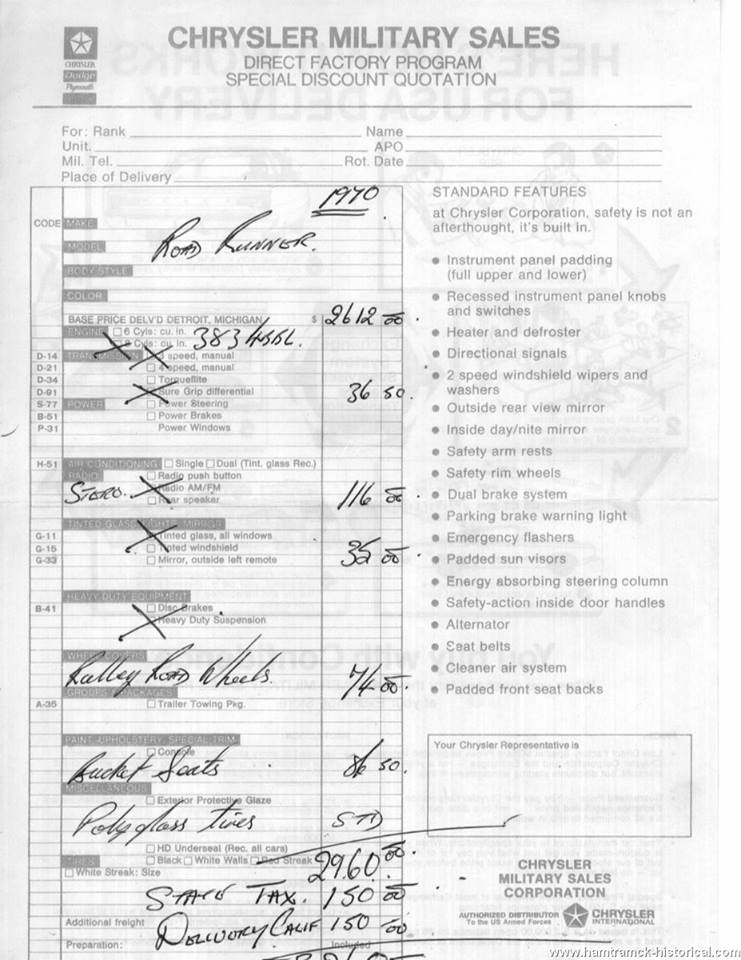 CHRYSLER
Dodge
Plymouth
CHRYSLER MILITARY SALES
DIRECT FACTORY PROGRAM
SPECIAL DISCOUNT QUOTATION
For: Rank Name
Unit. APO
Mil. Tel. Rot. Date
Place of Delivery
1970
CODE MAKE
ROAD RUNNER.
MODEL
BODY STYLE
COLOR
BASE PRICE DELV'D DETROIT, MICHIGAN $ 2612 00
ENGINE 6 Cyls: cu. in.
8 Cyls: cu. in. 383 4BBL.
D-14 TRANSMISSION 3 speed, manual
D-21 4 speed, manual
D-34 Torqueflite
D-91 Sure Grip differential 36 50.
S-77 POWER Power Steering
B-51 Power Brakes
P-31 Power Windows
H-51 AIR CONDITIONING Single Dual (Tint. glass Rec.)
RADIO Radio push button
STERO. Radio AM/FM 116 00
Rear speaker
TINTED GLASS LIGHTS MIRROR
G-11 Tinted glass, all windows
G-15 Tinted windshield 35 00
G-33 Mirror, outside left remote
HEAVY DUTY EQUIPMENT
B-41 Disc Brakes
Heavy Duty Suspension
WHEEL COVERS
Ralley Road Wheels. 74 00.
GROUPS PACKAGES
A-35 Trailer Towing Pkg.
PAINT-UPHOLSTERY, SPECIAL TRIM
Console
Bucket Seats 86 50.
MISCELLANEOUS
Exterior Protective Glaze
Polyglass tires STD
HD Underseal (Rec. all cars)
TIRES Black White Walls Red Streak
White Streak: Size
2960 00
STATE TAX. 150 00
Additional freight
DELIVERY CALIF 150 00
Preparation: Included
STANDARD FEATURES
at Chrysler Corporation, safety is not an
afterthought, it's built in.
● Instrument panel padding
(full upper and lower)
● Recessed instrument panel knobs
and switches
● Heater and defroster
● Directional signals
● 2 speed windshield wipers and
washers
● Outside rear view mirror
● Inside day/nite mirror
● Safety arm rests
● Safety rim wheels
● Dual brake system
● Parking brake warning light
● Emergency flashers
● Padded sun visors
● Energy absorbing steering column
● Safety-action inside door handles
● Alternator
● Seat belts
● Cleaner air system
● Padded front seat backs
Your Chrysler Representative is
CHRYSLER
MILITARY SALES
CORPORATION
AUTHORIZED DISTRIBUTOR
To the US Armed Forces
CHRYSLER
INTERNATIONAL
www.hamtramck-historical.com